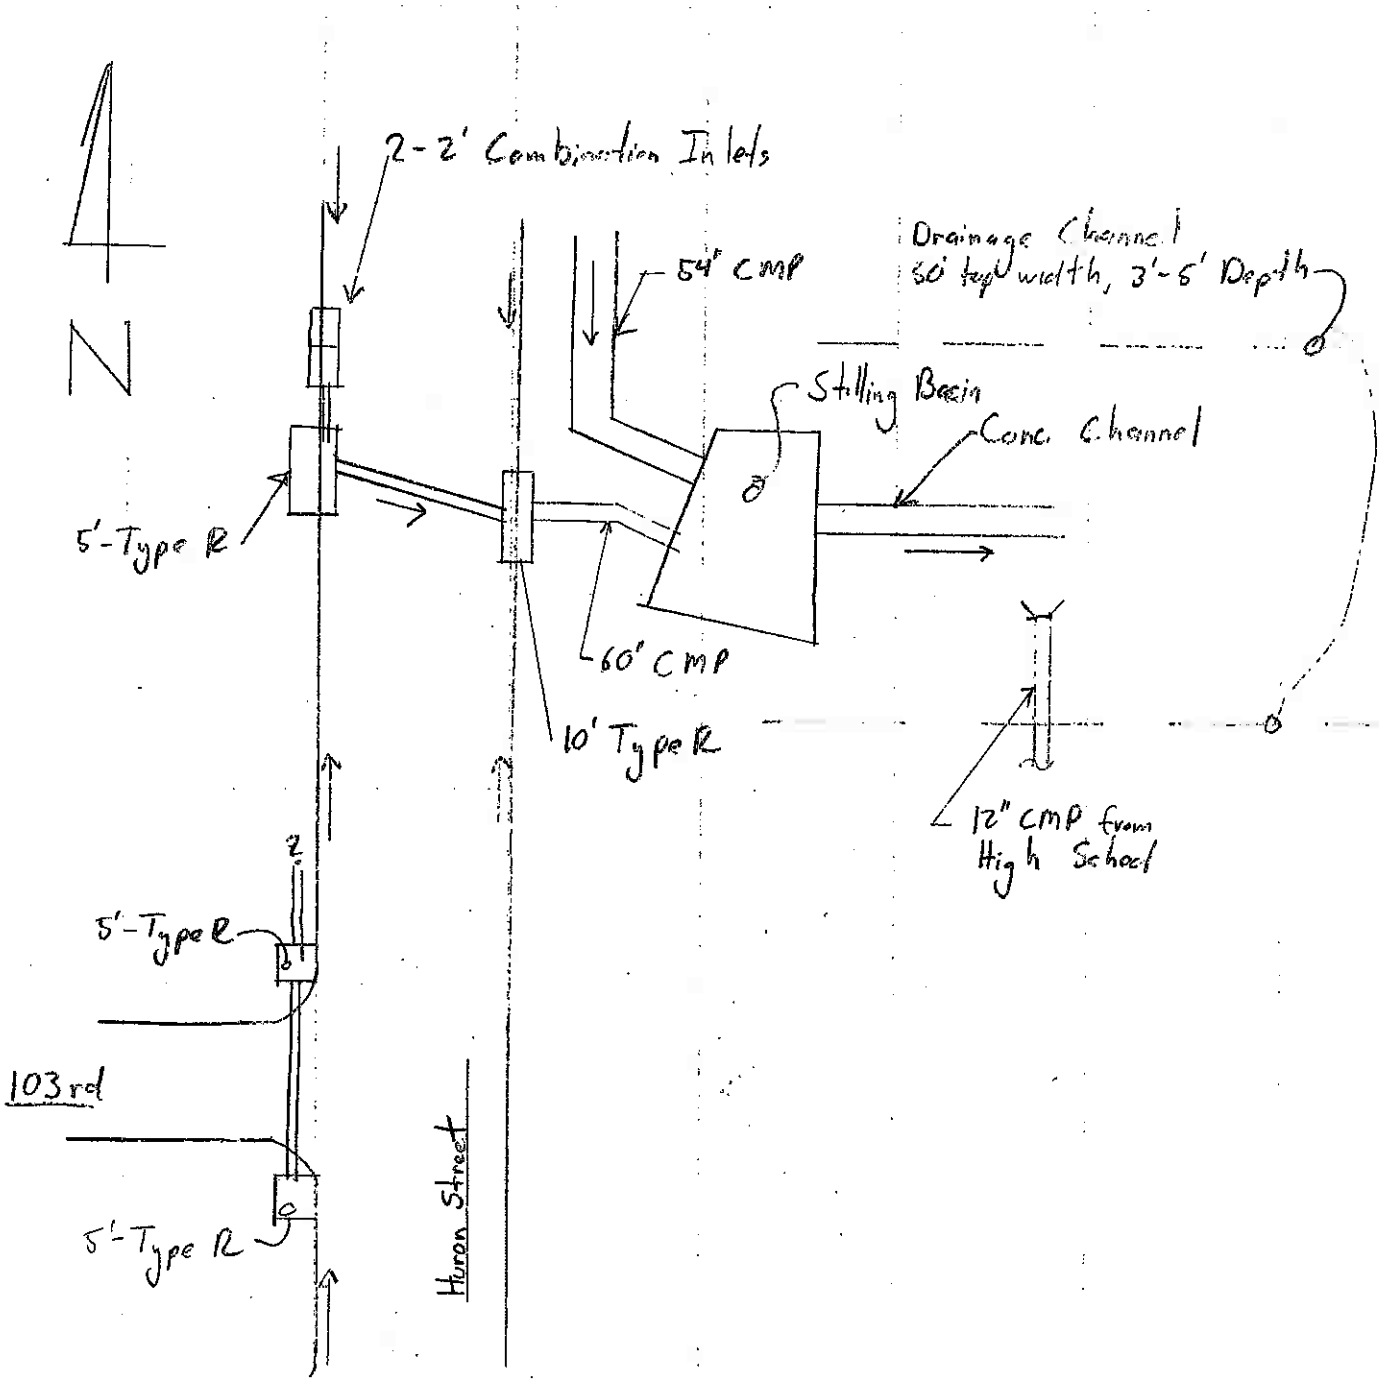 2-2' Combination Inlets
54" CMP
Drainage Channel
50' top width, 3'-5' Depth
N
Stilling Basin
Conc. Channel
5'-Type R
60" CMP
10' Type R
12" CMP from
High School
?
5'-Type R
103rd
Huron Street
5'-Type R